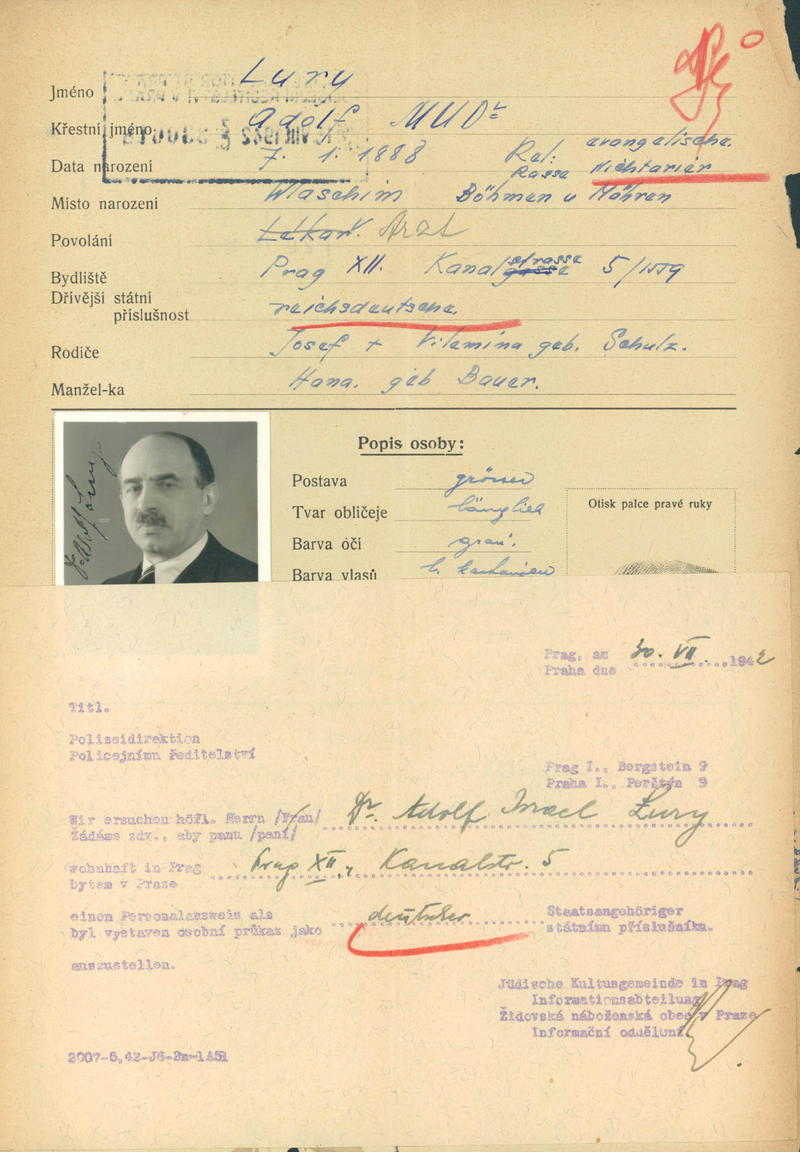 Jméno Lury
Křestní jméno Adolf MUDr
Data narození 7. 1. 1888 Rel: evangelische.
Rasse Nichtarier
Místo narození Wlaschim Böhmen u Mähren
Povolání Lékař. Arzt
Bydliště Prag XII. Kanalstrasse 5/1559
Dřívější státní
příslušnost reichsdeutsche.
Rodiče Josef + Vilemina geb. Schulz.
Manžel-ka Hana. geb Bauer.
Popis osoby:
Postava grösser
Tvar obličeje länglich
Barva očí grau.
Barva vlasů
Otisk palce pravé ruky
Dr Adolf Lury
Prag, am
Praha dne 30. VII. 1942
Titl.
Polizeidirektion
Policejnímu ředitelství
Prag I., Bergstein 9
Praha I., Perštýn 9
Wir ersuchen höfl. Herrn /Frau/ Dr. Adolf Israel Lury
Žádáme zdv., aby panu /paní/
wohnhaft in Prag Prag XII., Kanalstr. 5
bytem v Praze
einen Personalausweis als deutscher Staatsangehöriger
byl vystaven osobní průkaz jako státnímu příslušníku.
auszustellen.
Jüdische Kultusgemeinde in Prag
Informationsabteilung
Židovská náboženská obec v Praze
Informační oddělení.